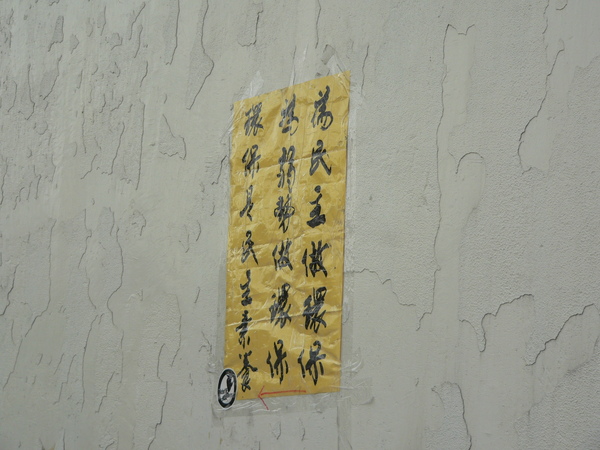 為民主做環保
為弱勢做環保
環保是民主素養